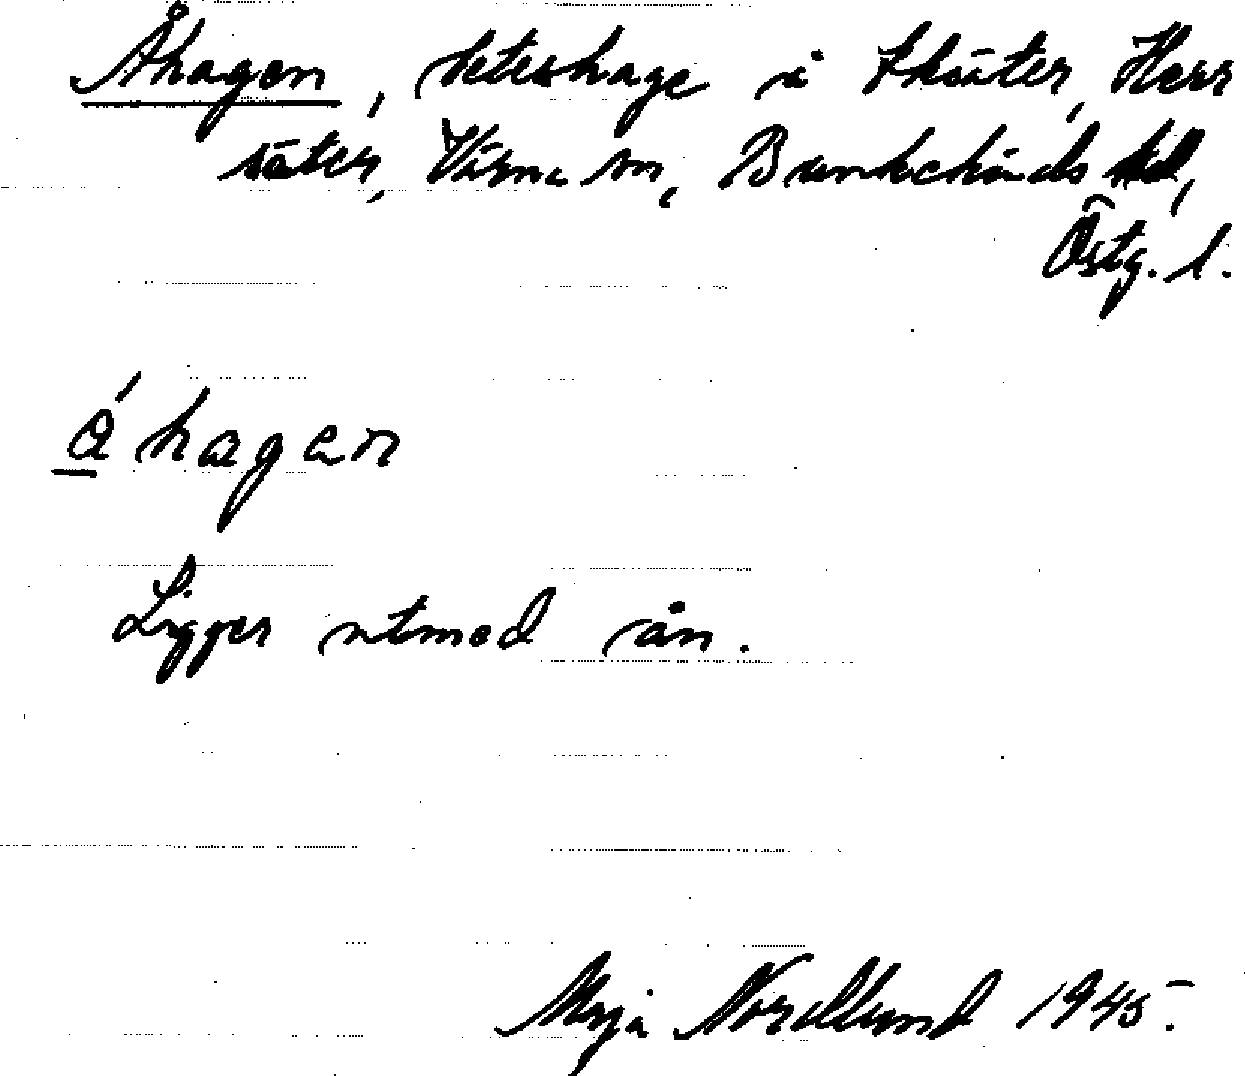 Åhagen, beteshage i Fläter, Herr
säter, Värna sn, Bankekinds hd,
Östg. l.
á hagen
Ligger utmed ån.
Maja Nordlund 1945.